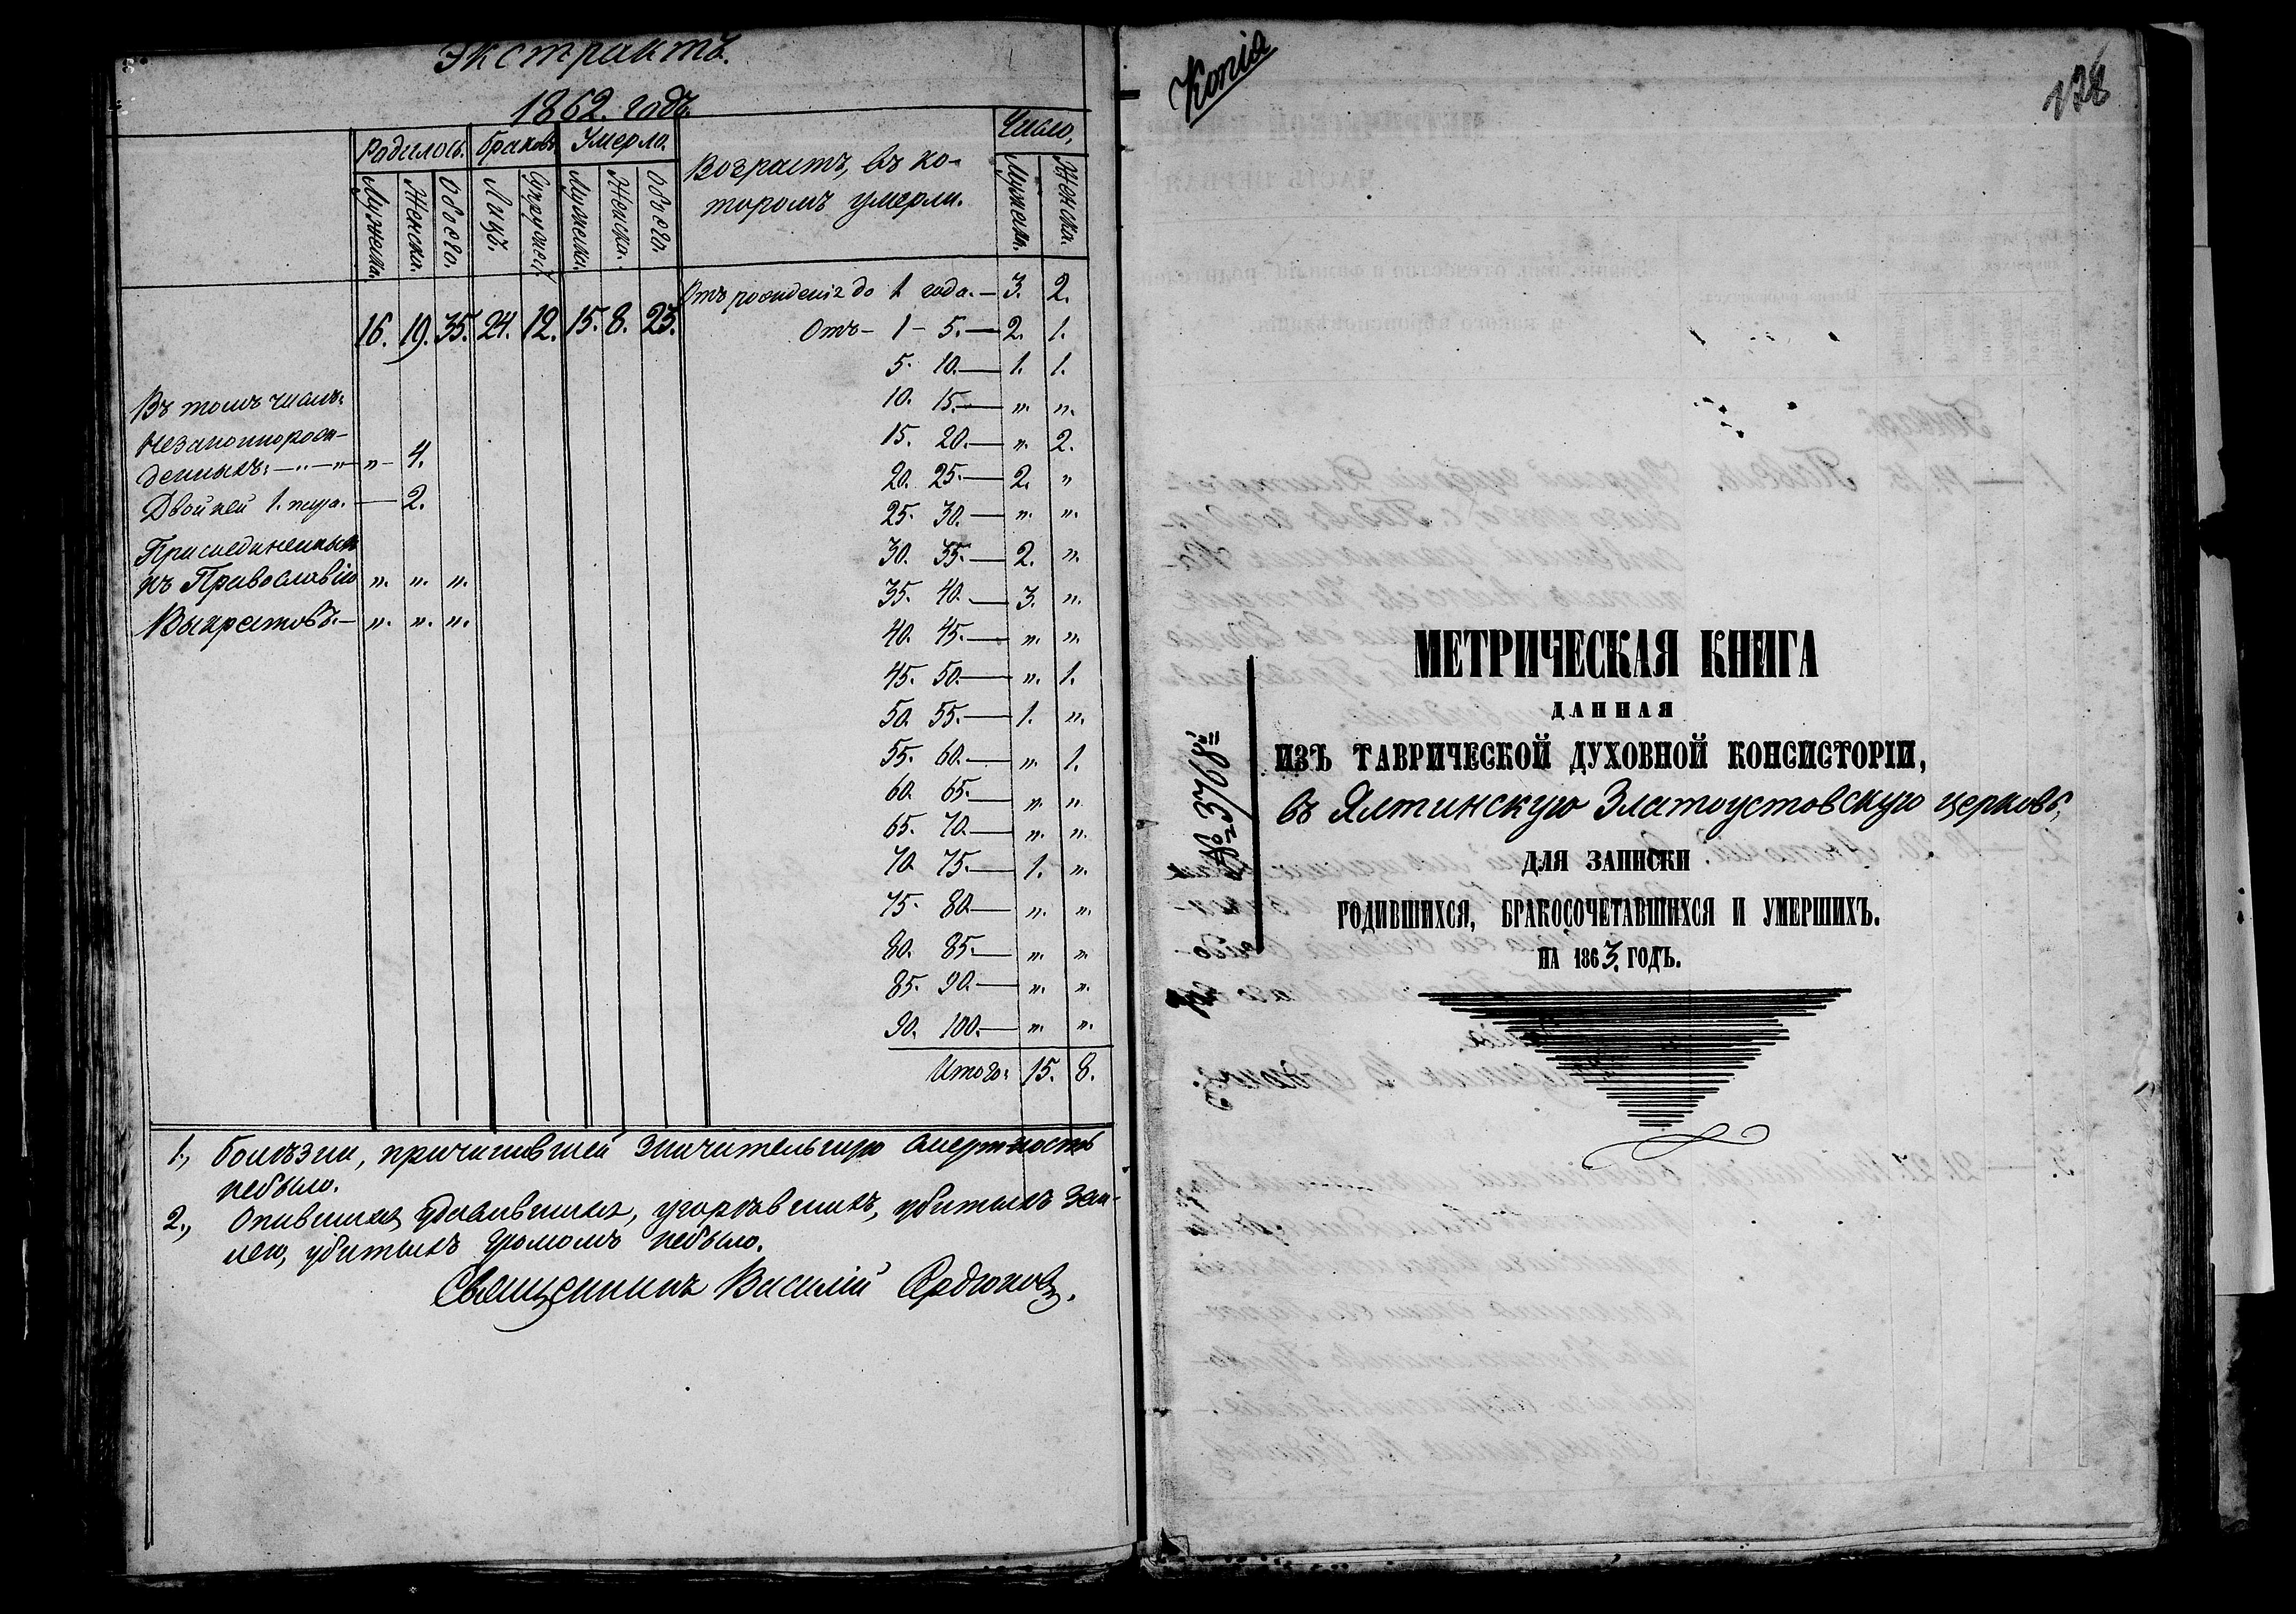 Экстрактъ.
1862. годъ.
Родилось. Браковъ. Умерло. Возрастъ, въ ко- Число.
торомъ умерли.
Мужеска. Женска. Обоего. Лицъ. Супружест. Мужеска. Женска. Обоего. Мужеска. Женска.
Отъ рожденія до 1 года. — 3. 2.
16. 19. 35. 24. 12. 15. 8. 23. Отъ — 1 — 5. — 2. 1.
5. 10. — 1. 1.
Въ томъ числѣ: 10. 15. — ". ".
Незаконнорож- 15. 20. — ". 2.
денныхъ: — " — " — " — 4. 20. 25. — 2. "
Двойней 1. пара. — 2. 25. 30. — ". ".
Присоединенныхъ 30. 35. — 2. ".
къ Православію ". ". ". 35. 40. — 3. ".
Выкрестовъ. — ". ". ". 40. 45. — ". ".
45. 50. — ". 1.
50. 55. — 1. ".
55. 60. — ". 1.
60. 65. — ". ".
65. 70. — ". ".
70. 75. — 1. ".
75. 80. — ". ".
80. 85. — ". "
85. 90. — ". ".
90. 100. — ". ".
Итого: 15. 8.
1., Болѣзни, причинившей значительную смертность
небыло.
2., Опившихся, удавившихся, угорѣвшихъ, убитыхъ зем-
лею, убитыхъ громомъ небыло.
Священникъ Василій
Копія
178
МЕТРИЧЕСКАЯ КНИГА
ДАННАЯ
ИЗЪ ТАВРИЧЕСКОЙ ДУХОВНОЙ КОНСИСТОРІИ,
въ Ялтинскую Златоустовскую церковь,
ДЛЯ ЗАПИСКИ
РОДИВШИХСЯ, БРАКОСОЧЕТАВШИХСЯ И УМЕРШИХЪ.
НА 1863. ГОДЪ.
№ 3768й